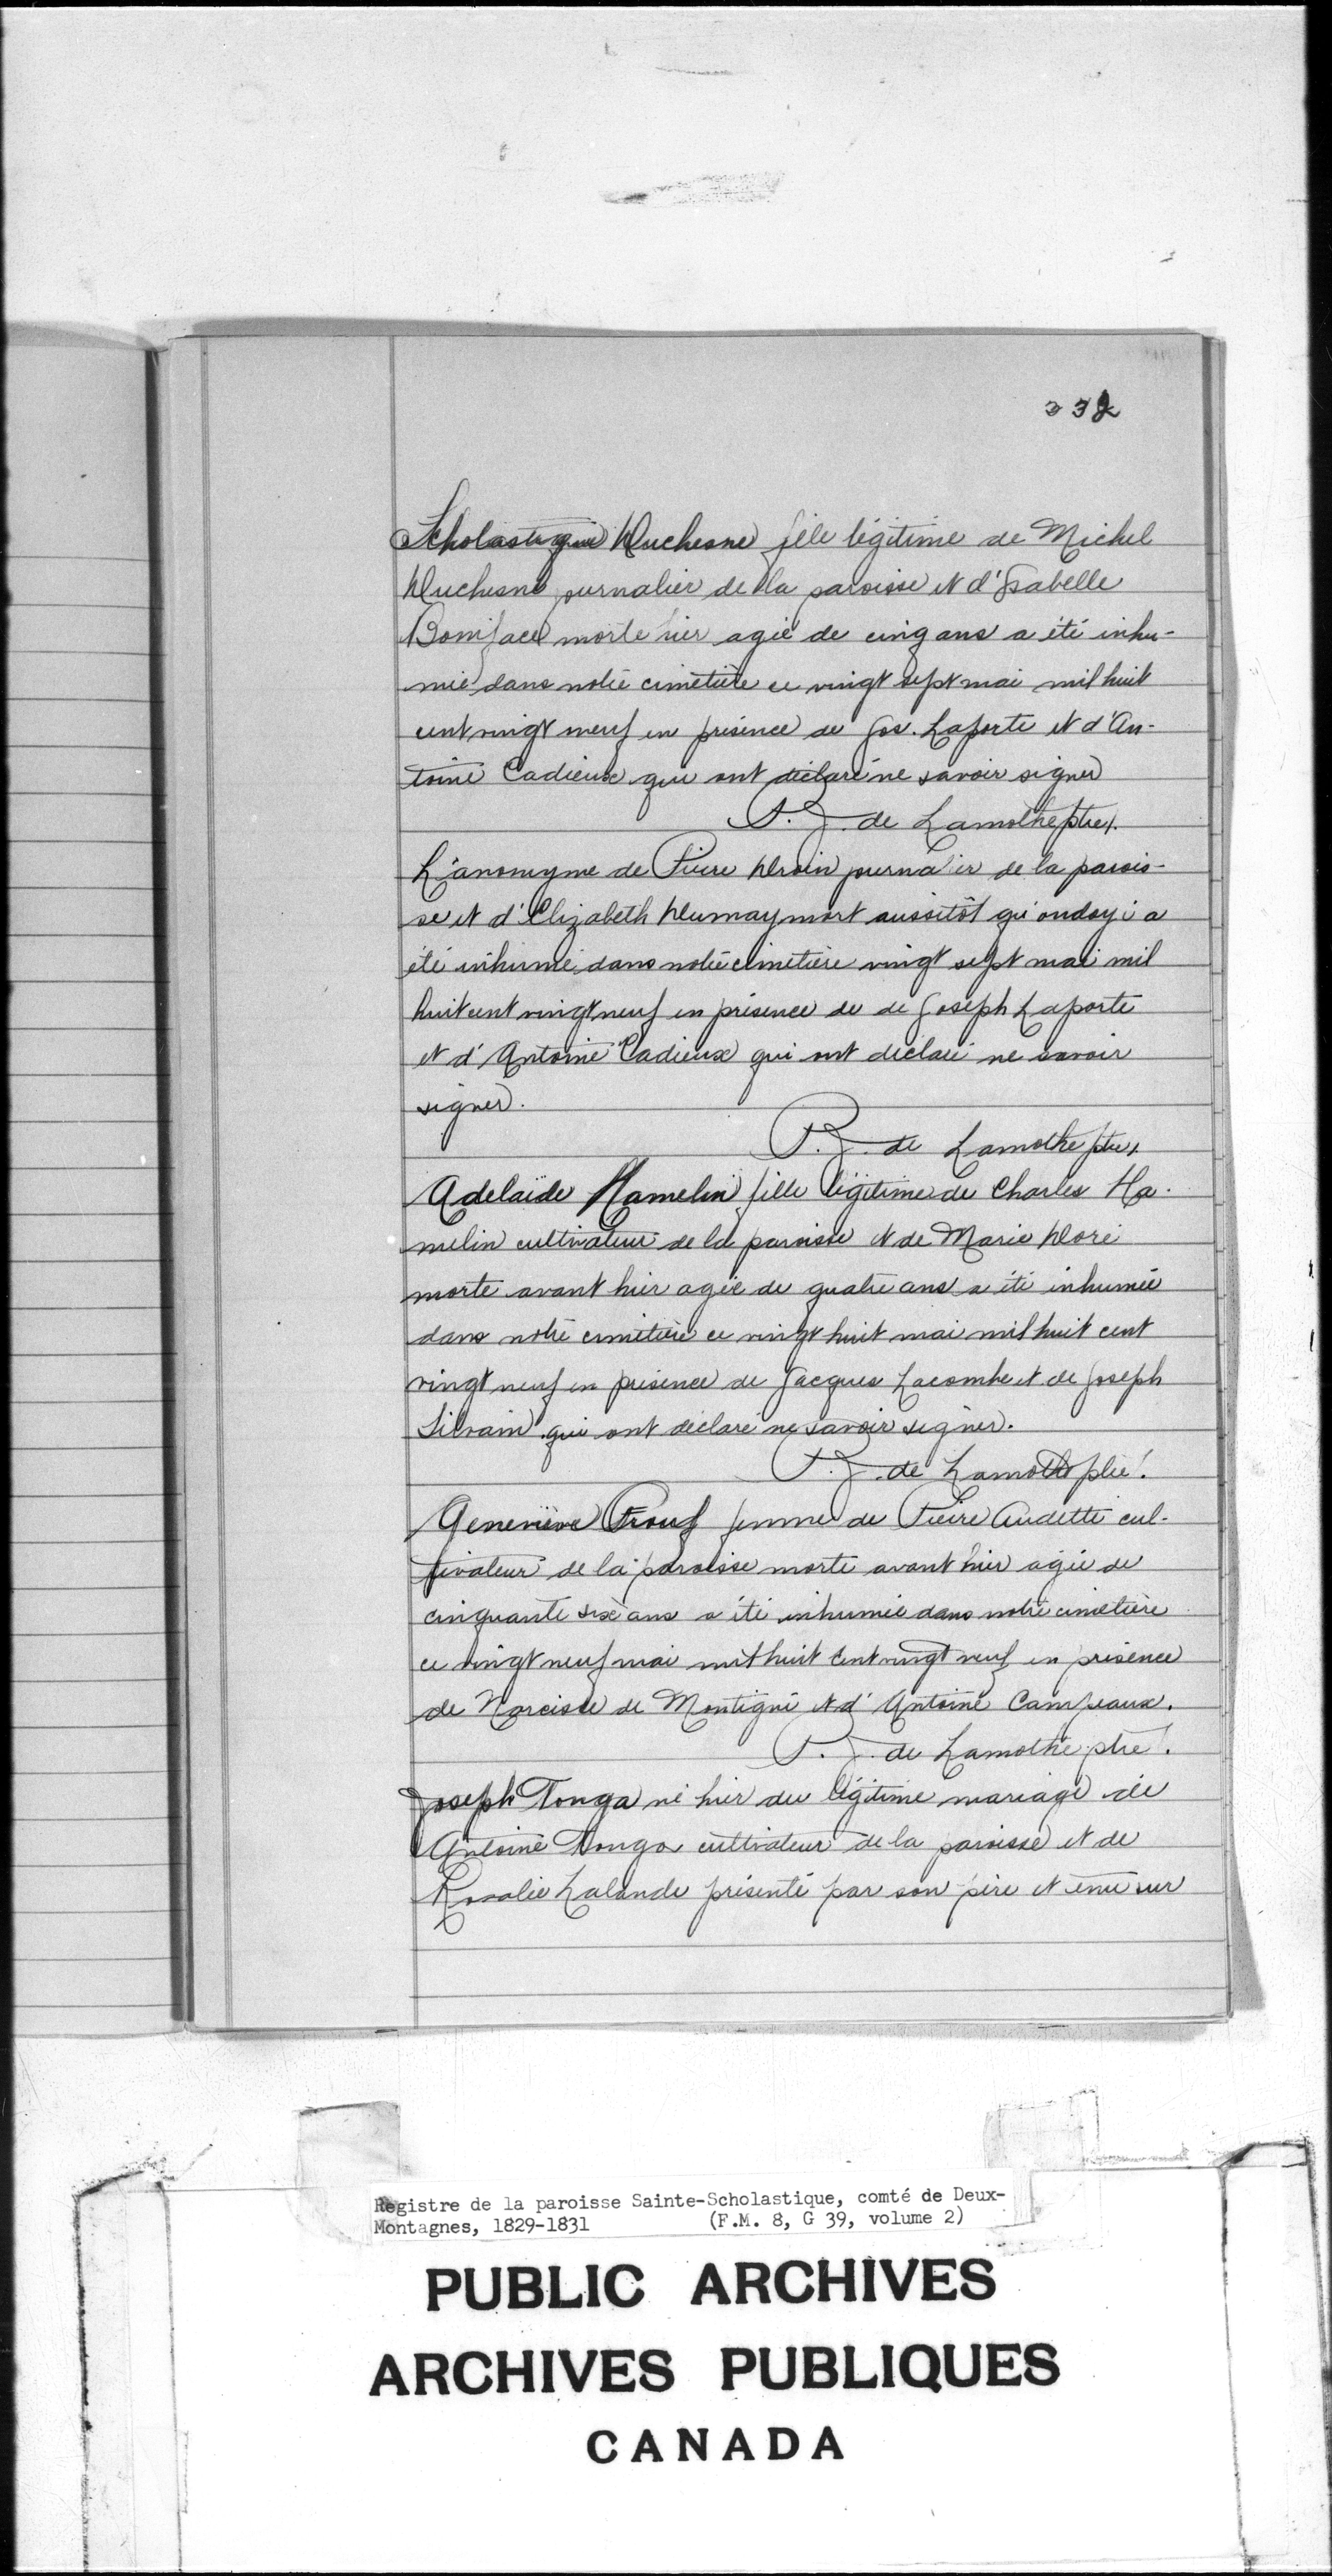 332
Scholastique Duchesne fille légitime de Michel
Duchesne journalier de la paroisse et d'Isabelle
Boniface morte hier agée de cinq ans a été inhu-
mée dans notre cimetière ce vingt sept mai mil huit
cent vingt neuf en présence de Jos. Laporte et d'An-
toine Cadieux qui ont déclaré ne savoir signer
P. J. de Lamothe ptre.
L'anonyme de Pierre Drouin journalier de la parois-
se et d'Elizabeth Dumay mort aussitôt qu'ondoyé a
été inhumé dans notre cimetière vingt sept mai mil
huit cent vingt neuf en présence de de Joseph Laporte
et d'Antoine Cadieux qui ont déclaré ne savoir
signer.
P. J. de Lamothe ptre.
Adelaïde Hamelin fille légitime de Charles Ha-
melin cultivateur de la paroisse et de Marie Doré
morte avant hier agée de quatre ans a été inhumée
dans notre cimetière ce vingt huit mai mil huit cent
vingt neuf en présence de Jacques Lacombe et de Joseph
Silvain qui ont déclaré ne savoir signer.
P. J. de Lamothe ptre.
Geneviève Prouf femme de Pierre Audette cul-
tivateur de la paroisse morte avant hier agée de
cinquante six ans a été inhumée dans notre cimetière
ce vingt neuf mai mil huit cent vingt neuf en présence
de Narcisse de Montigni et d'Antoine Campeaux.
P. J. de Lamothe ptre.
Joseph Tonga né hier du légitime mariage de
Antoine Tonga cultivateur de la paroisse et de
Rosalie Lalande présenté par son père et sur
Registre de la paroisse Sainte-Scholastique, comté de Deux-
Montagnes, 1829-1831 (F.M. 8, G 39, volume 2)
PUBLIC ARCHIVES
ARCHIVES PUBLIQUES
CANADA